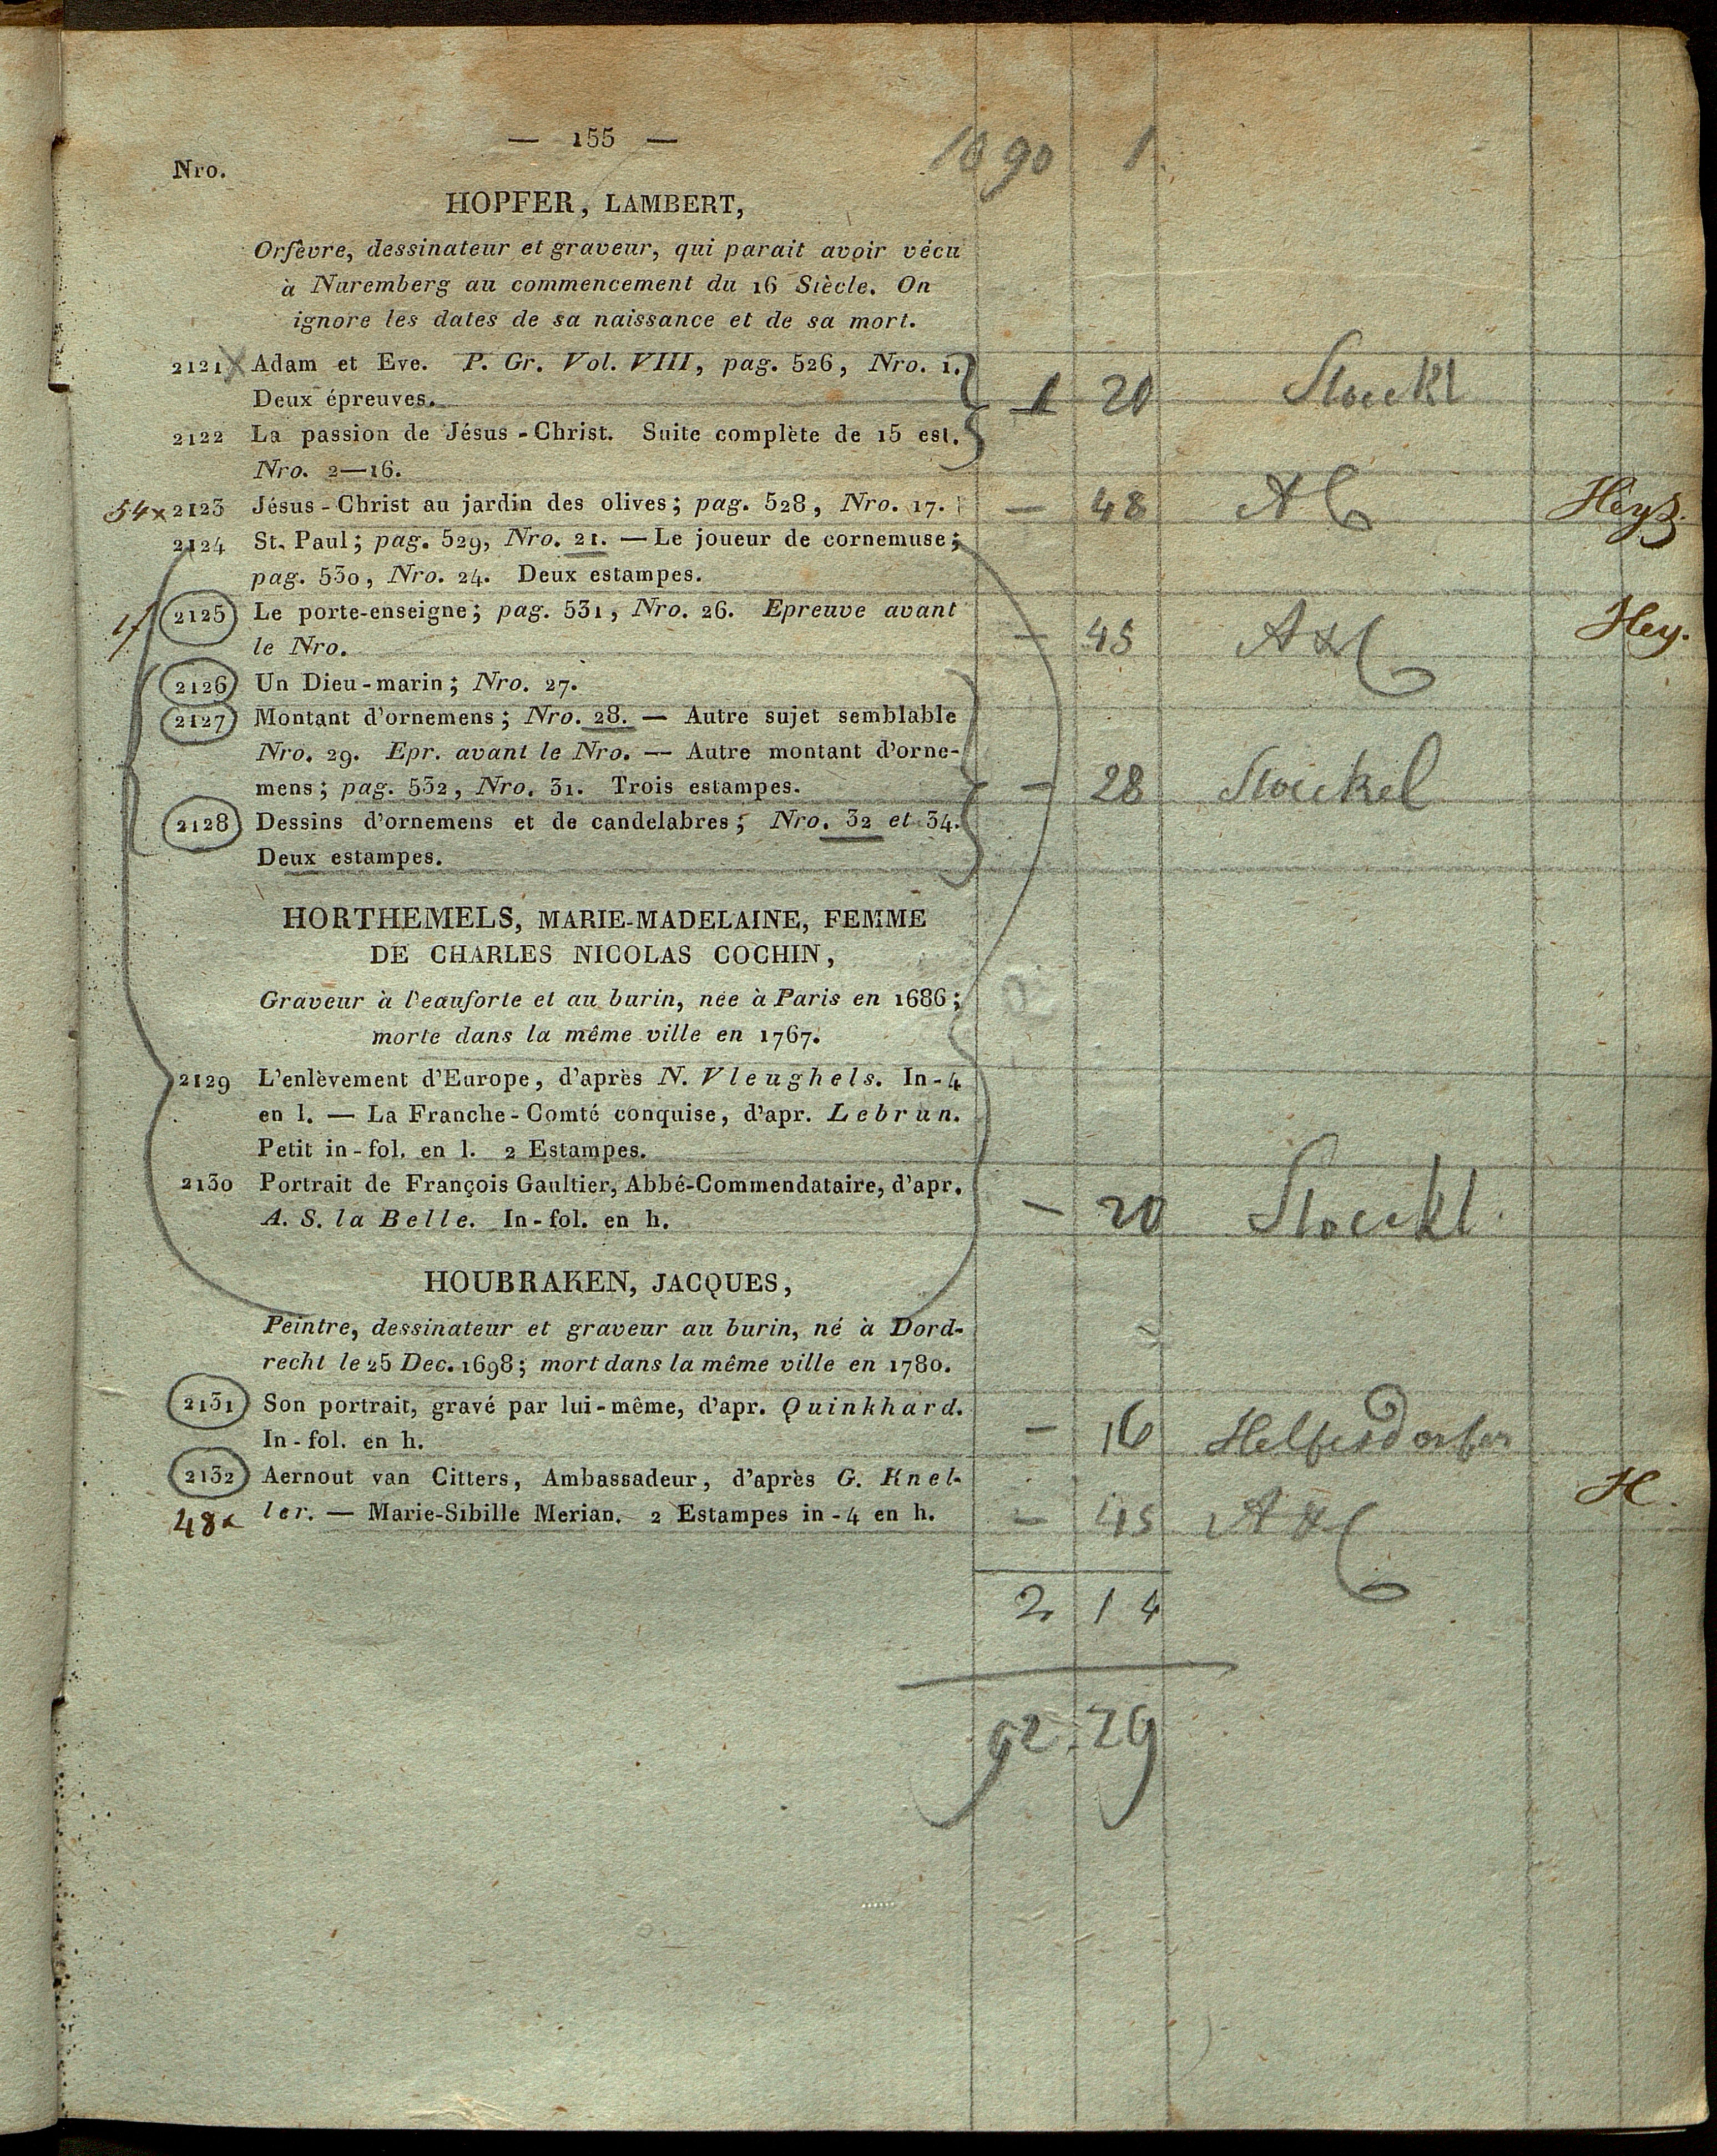 — 155 —
90 1
Nro.
HOPFER, LAMBERT,
Orfêvre, dessinateur et graveur, qui parait avoir vécu
à Nuremberg au commencement du 16 Siècle. On
ignore les dates de sa naissance et de sa mort.
2121 Adam et Eve. P. Gr. Vol. VIII, pag. 526, Nro. 1.
Deux épreuves.
1 20 Stoeckl
2122 La passion de Jésus-Christ. Suite complète de 15 est.
Nro. 2—16.
54x 2123 Jésus-Christ au jardin des olives; pag. 528, Nro. 17. — 48
2124 St. Paul; pag. 529, Nro. 21. — Le joueur de cornemuse;
pag. 530, Nro. 24. Deux estampes.
2125 Le porte-enseigne; pag. 531, Nro. 26. Epreuve avant
le Nro. — 45 Hey.
2126 Un Dieu-marin; Nro. 27.
2127 Montant d'ornemens; Nro. 28. — Autre sujet semblable
Nro. 29. Epr. avant le Nro. — Autre montant d'orne-
mens; pag. 532, Nro. 31. Trois estampes. — 28 Stoeckel
2128 Dessins d'ornemens et de candelabres; Nro. 32 et 34.
Deux estampes.
HORTHEMELS, MARIE-MADELAINE, FEMME
DE CHARLES NICOLAS COCHIN,
Graveur à l'eauforte et au burin, née à Paris en 1686;
morte dans la même ville en 1767.
2129 L'enlèvement d'Europe, d'après N. Vleughels. In-4
en l. — La Franche-Comté conquise, d'apr. Lebrun.
Petit in-fol. en l. 2 Estampes.
2130 Portrait de François Gaultier, Abbé-Commendataire, d'apr.
A. S. la Belle. In-fol. en h. — 20 Stoeckl.
HOUBRAKEN, JACQUES,
Peintre, dessinateur et graveur au burin, né à Dord-
recht le 25 Dec. 1698; mort dans la même ville en 1780.
2131 Son portrait, gravé par lui-même, d'apr. Quinkhard.
In-fol. en h. — 16 Helfesdorfer
2132 Aernout van Citters, Ambassadeur, d'après G. Knel-
48x ler. — Marie-Sibille Merian. 2 Estampes in-4 en h. — 45 H.
2 14
92.29